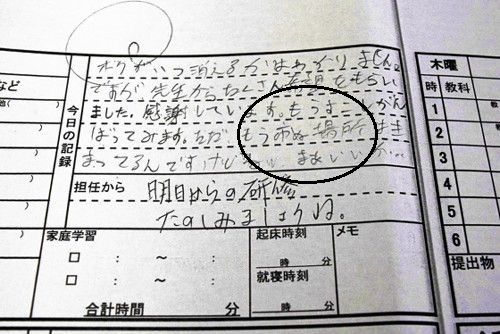 など
今日の記録
ボクがいつ消えるかはわかりません。
ですが、先生からたくさん希望をもらい
ました。感謝しています。もうすこしがん
ばってみます。ただ、もう市ぬ場所はき
まってるんですけどね まあいいか…
担任から
明日からの研修
たのしみましょうね。
家庭学習
: ～ :
: ～ :
合計時間 分
起床時刻
時 分
就寝時刻
時 分
メモ
木曜
時 教科
1
2
3
4
5
6
提出物